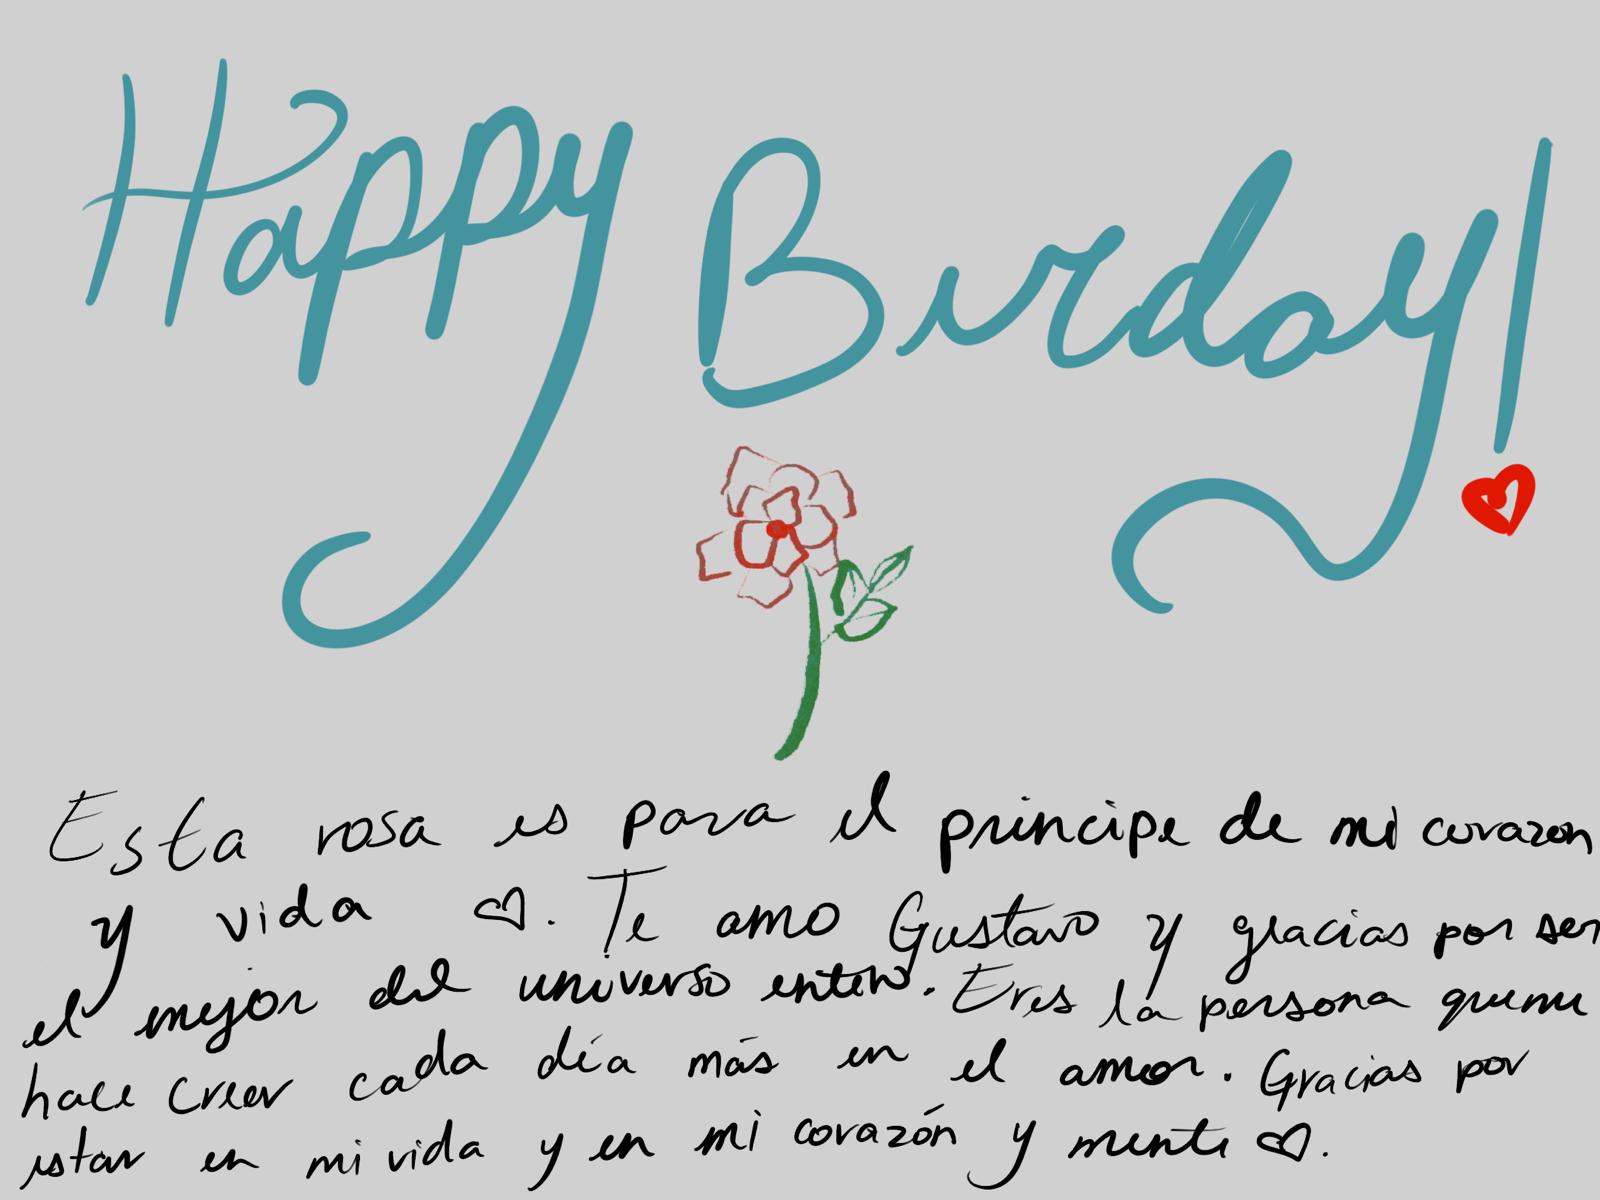 Happy Birday!
Esta rosa es para el principe de mi corazon
y vida ♡. Te amo Gustavo y gracias por ser
el mejor del universo entero. Eres la persona que me
hace creer cada día más en el amor. Gracias por
estar en mi vida y en mi corazón y mente ♡.